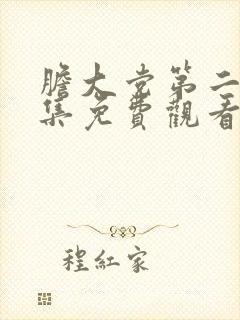 膽大党第二
集免費觀看
程紅家